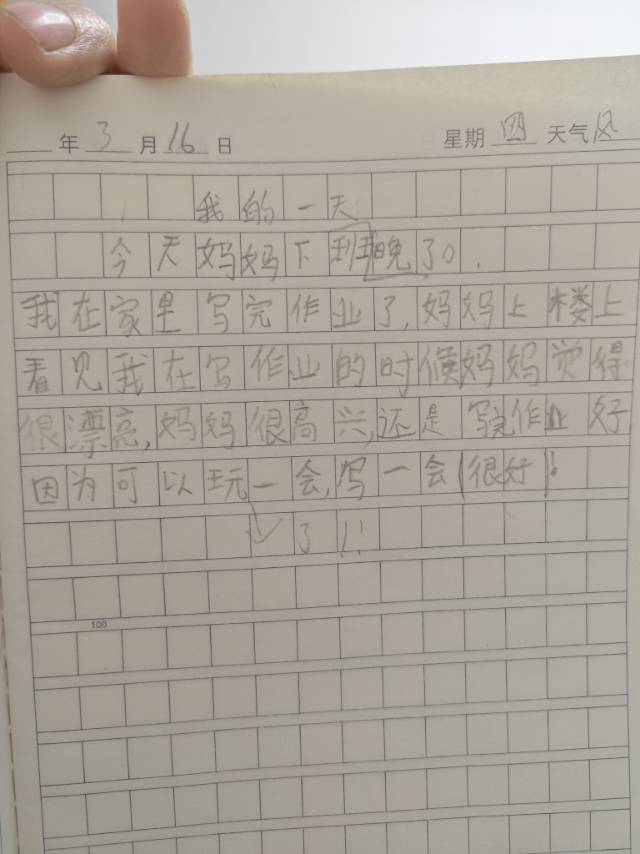 年3月16日 星期四 天气风
我的一天
今天妈妈下班晚了。
我在家里写完作业了,妈妈上楼上
看见我在写作业的时候妈妈觉得
很漂亮,妈妈很高兴,还是写完作业好
因为可以玩一会,写一会(很好)!
了!!
100